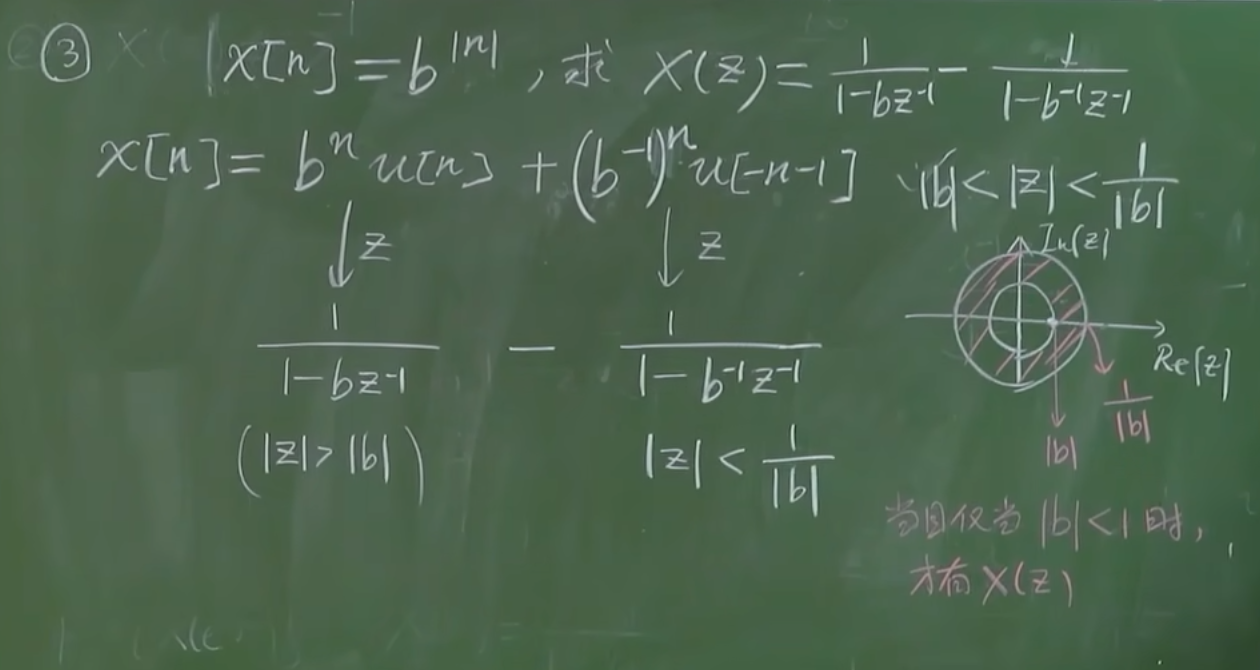 ③ x[n]=b^|n|, 求 X(z)= 1/(1-bz⁻¹) - 1/(1-b⁻¹z⁻¹)
x[n]= bⁿu[n] + (b⁻¹)ⁿu[-n-1] |b|<|z|<1/|b|
↓z ↓z
1/(1-bz⁻¹) - 1/(1-b⁻¹z⁻¹)
(|z|>|b|) |z|<1/|b|
Im[z]
Re[z]
1/|b|
|b|
当且仅当|b|<1时,
才有X(z)